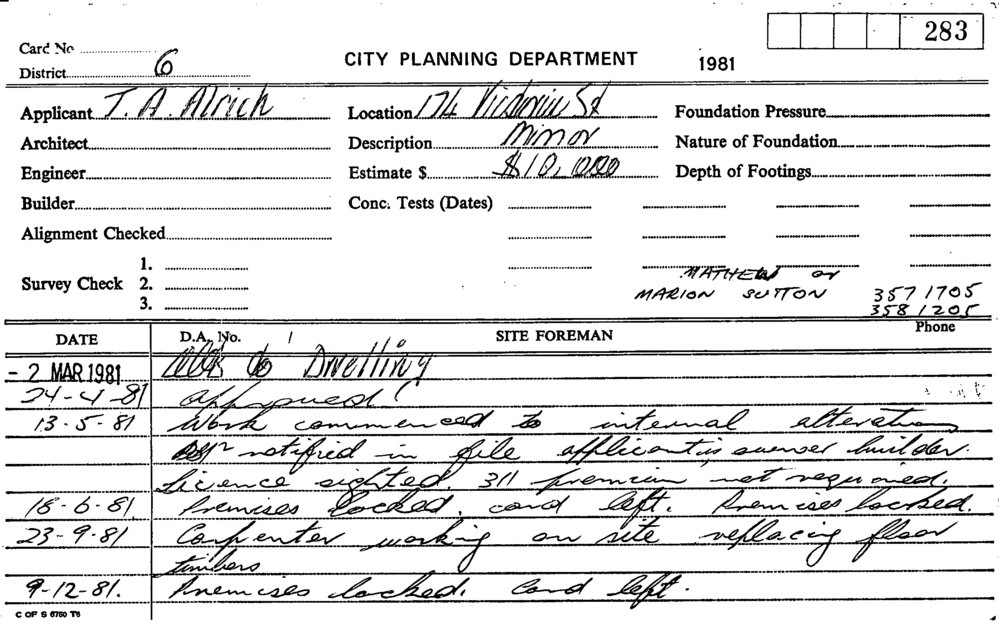 283
Card No
District 6
CITY PLANNING DEPARTMENT 1981
Applicant T. A. Alrich Location 174 Victoria St Foundation Pressure
Architect Description Minor Nature of Foundation
Engineer Estimate $ $10,000 Depth of Footings
Builder Conc. Tests (Dates)
Alignment Checked
1.
Survey Check 2.
3.
MATHEW or
MARION SUTTON 357 1705
358 1205
Phone
DATE D.A. No. SITE FOREMAN
- 2 MAR 1981 to Dwelling
24-4-81 approved
13-5-81 Work commenced to internal alterations
notified in file applicant is owner builder.
licence sighted. 311 premium not required.
18-6-81 Premises locked. card left. Premises locked.
23-9-81 Carpenter working on site replacing floor
timbers
9-12-81. Premises locked. Card left.
C OF S 6760 T6